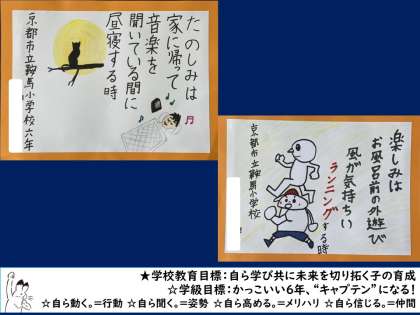 たのしみは
家に帰って
音楽を
聞いている間に
昼寝する時
京都市立鞍馬小学校六年
楽しみは
お風呂前の外遊び
風が気持ちい
ランニングする時
京都市立鞍馬小学校
★学校教育目標：自ら学び共に未来を切り拓く子の育成
☆学級目標：かっこいい6年、“キャプテン”になる！
☆自ら動く。＝行動 ☆自ら聞く。＝姿勢 ☆自ら高める。＝メリハリ ☆自ら信じる。＝仲間